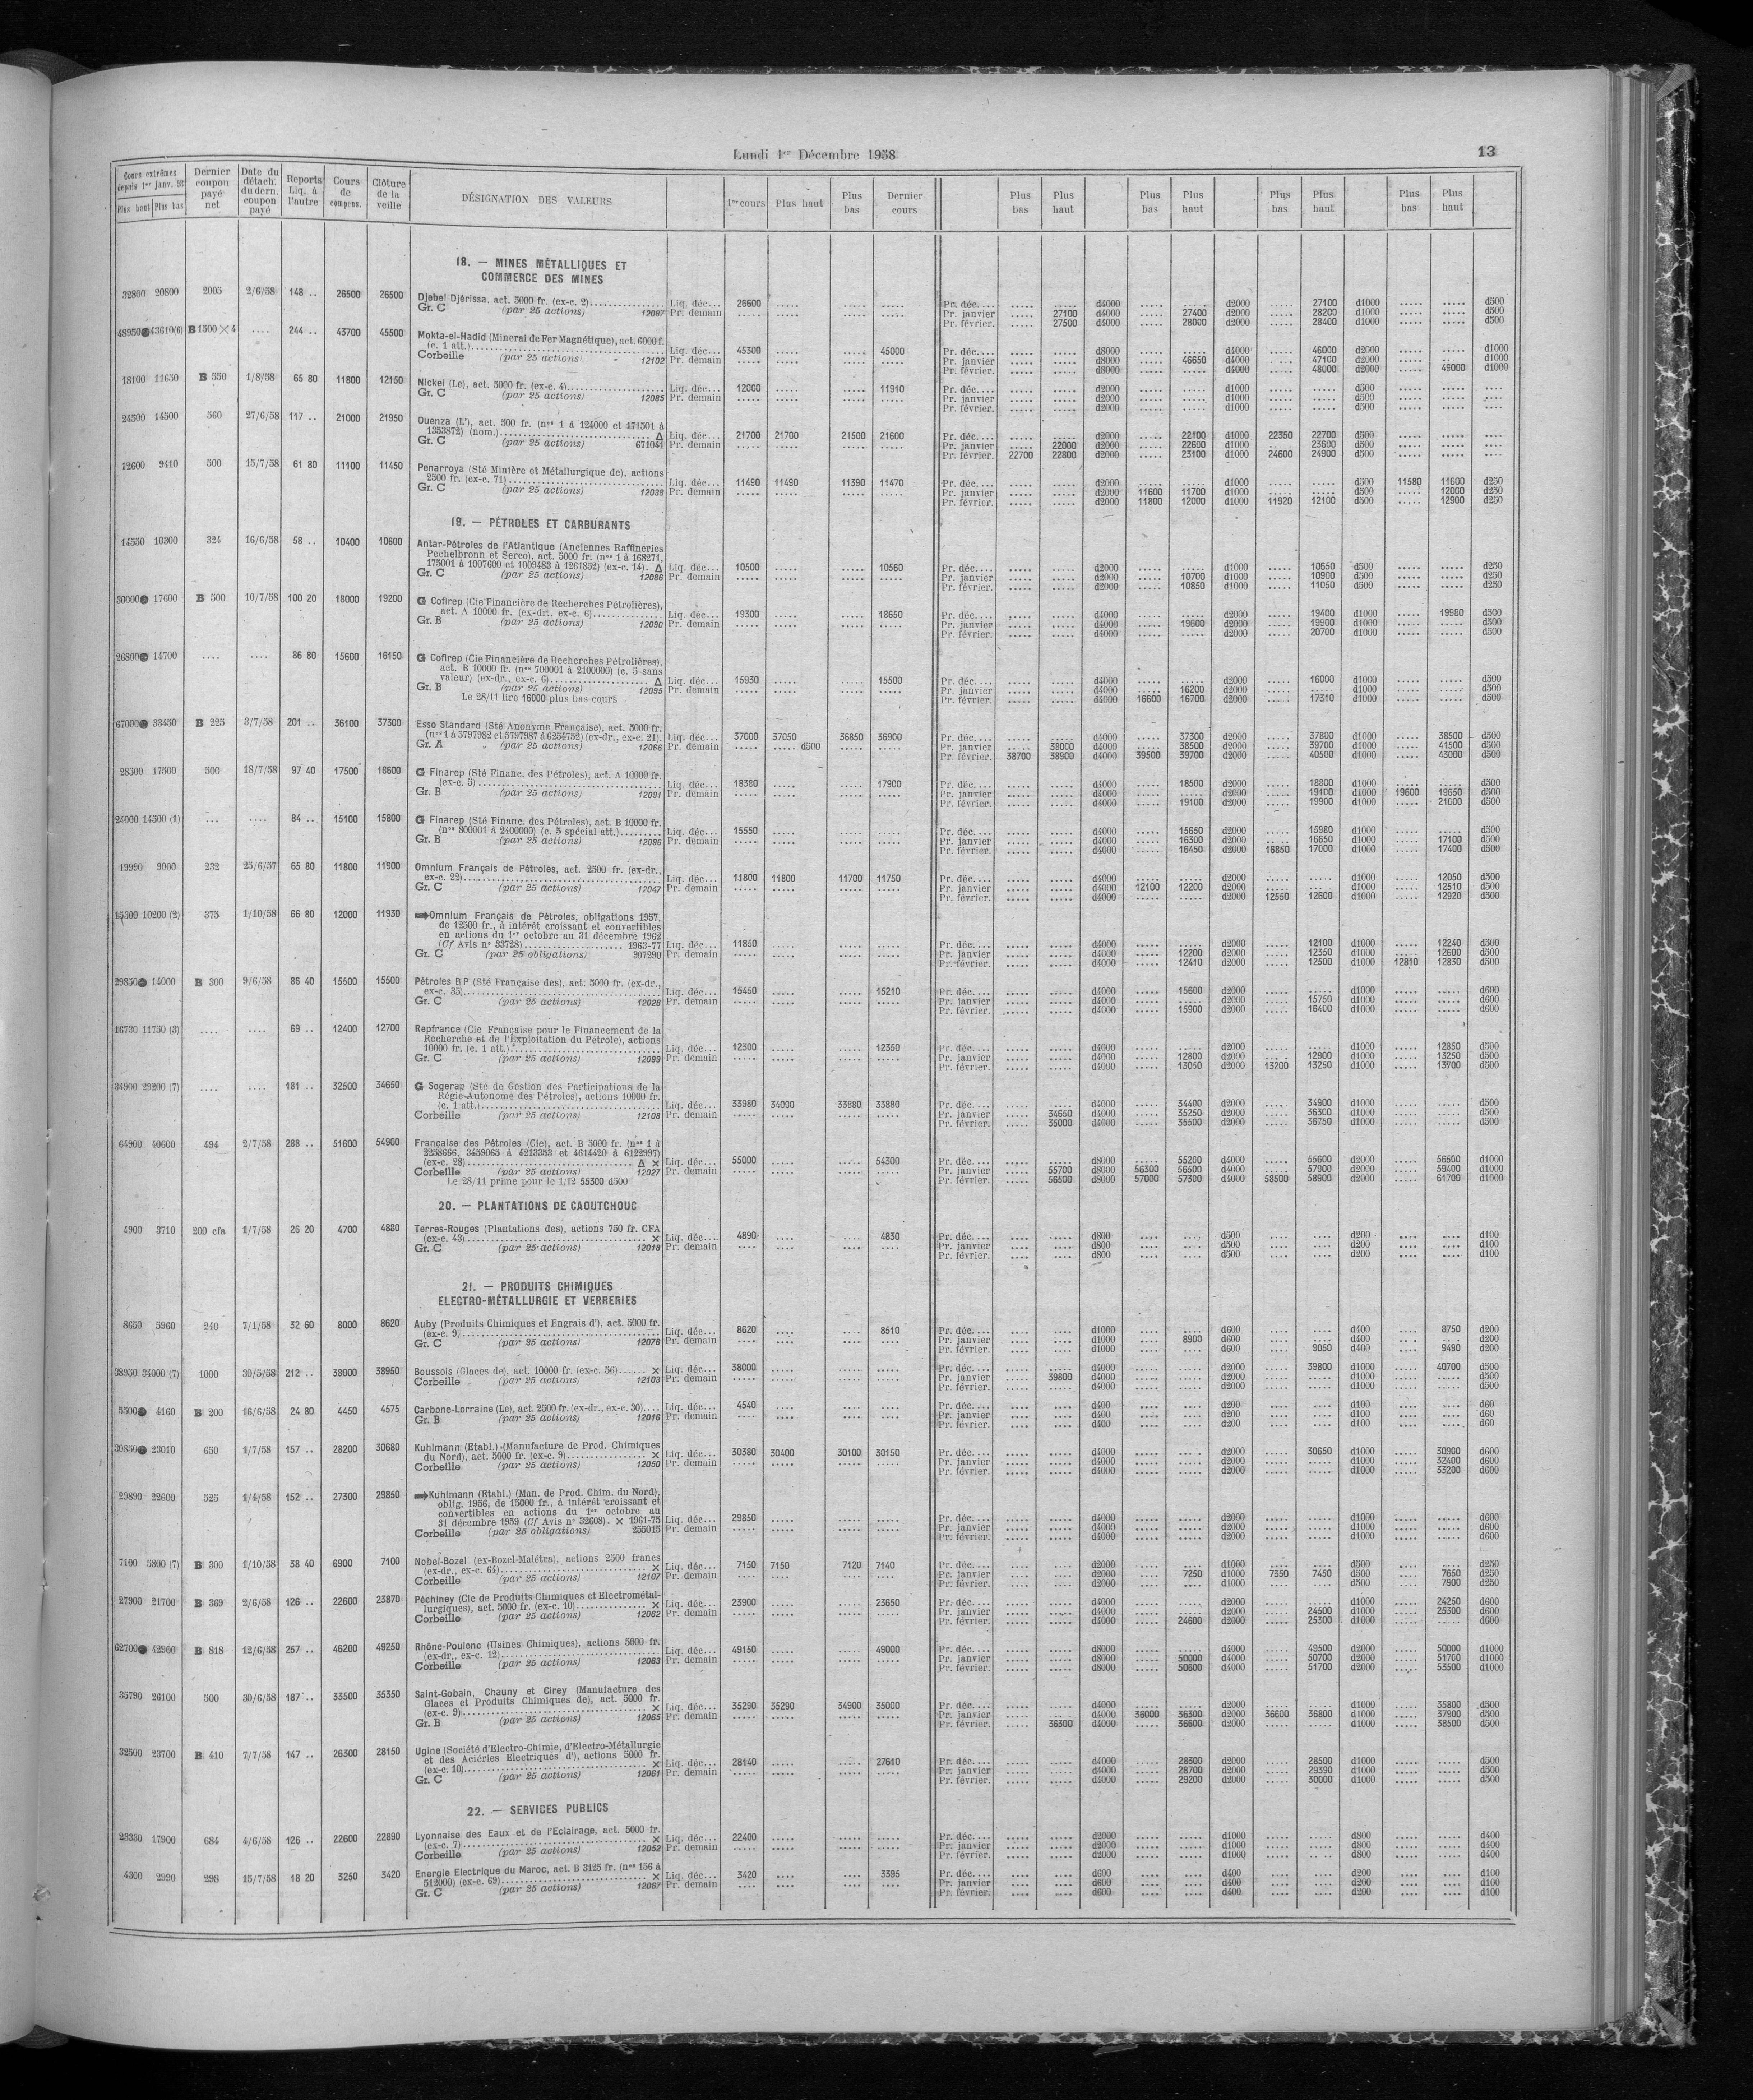 Lundi 1er Décembre 1958
13
Cours extrêmes depuis 1er janv. 58 Plus haut Plus bas
Dernier coupon payé net
Date du détach. du dern. coupon payé
Reports Liq. à l'autre
Cours de compens.
Clôture de la veille
DÉSIGNATION DES VALEURS
1er cours Plus haut Plus bas Dernier cours
Plus bas Plus haut Plus bas Plus haut Plus bas Plus haut Plus bas Plus haut
18. — MINES MÉTALLIQUES ET
COMMERCE DES MINES
32800 20800 2005 2/6/58 148 .. 26500 26500
Djebel Djérissa, act. 5000 fr. (ex-c. 2) Liq. déc... 26600 ..... ..... ..... Pr. déc.... ..... ..... d4000 ..... ..... d2000 ..... 27100 d1000 ..... ..... d500
Gr. C (par 25 actions) 12087 Pr. demain ..... ..... ..... ..... Pr. janvier ..... 27100 d4000 ..... 27400 d2000 ..... 28200 d1000 ..... ..... d500
Pr. février. ..... 27500 d4000 ..... 28000 d2000 ..... 28400 d1000 ..... ..... d500
48950 43610(6) B 1500 × 4 .... 244 .. 43700 45500
Mokta-el-Hadid (Minerai de Fer Magnétique), act. 6000 f.
(c. 1 att.) Liq. déc... 45300 ..... ..... 45000 Pr. déc.... ..... ..... d8000 ..... ..... d4000 ..... 46000 d2000 ..... ..... d1000
Corbeille (par 25 actions) 12102 Pr. demain ..... ..... ..... ..... Pr. janvier ..... ..... d8000 ..... 46650 d4000 ..... 47100 d2000 ..... ..... d1000
Pr. février. ..... ..... d8000 ..... ..... d4000 ..... 48000 d2000 ..... 49000 d1000
18100 11650 B 550 1/8/58 65 80 11800 12150
Nickel (Le), act. 5000 fr. (ex-c. 4) Liq. déc... 12000 ..... ..... 11910 Pr. déc.... ..... ..... d2000 ..... ..... d1000 ..... ..... d500 ..... ..... ....
Gr. C (par 25 actions) 12085 Pr. demain ..... ..... ..... ..... Pr. janvier ..... ..... d2000 ..... ..... d1000 ..... ..... d500 ..... ..... ....
Pr. février. ..... ..... d2000 ..... ..... d1000 ..... ..... d500 ..... ..... ....
24500 14500 560 27/6/58 117 .. 21000 21950
Ouenza (L'), act. 500 fr. (nos 1 à 124000 et 171501 à
1353872) (nom.) Δ Liq. déc... 21700 21700 21500 21600 Pr. déc.... ..... ..... d2000 ..... 22100 d1000 22350 22700 d500 ..... ..... ....
Gr. C (par 25 actions) 671041 Pr. demain ..... ..... ..... ..... Pr. janvier ..... 22000 d2000 ..... 22600 d1000 ..... 23600 d500 ..... ..... ....
Pr. février. 22700 22800 d2000 ..... 23100 d1000 24600 24900 d500 ..... ..... ....
12600 9410 500 15/7/58 61 80 11100 11450
Penarroya (Sté Minière et Métallurgique de), actions
2500 fr. (ex-c. 71) Liq. déc... 11490 11490 11390 11470 Pr. déc.... ..... ..... d2000 ..... ..... d1000 ..... ..... d500 11580 11600 d250
Gr. C (par 25 actions) 12038 Pr. demain ..... ..... ..... ..... Pr. janvier ..... ..... d2000 11600 11700 d1000 ..... ..... d500 ..... 12000 d250
Pr. février. ..... ..... d2000 11800 12000 d1000 11920 12100 d500 ..... 12900 d250
19. — PÉTROLES ET CARBURANTS
14550 10300 324 16/6/58 58 .. 10400 10600
Antar-Pétroles de l'Atlantique (Anciennes Raffineries
Pechelbronn et Serco), act. 5000 fr. (nos 1 à 168271,
175001 à 1007600 et 1009483 à 1261852) (ex-c. 14). Δ Liq. déc... 10500 ..... ..... 10560 Pr. déc.... ..... ..... d2000 ..... ..... d1000 ..... 10650 d500 ..... ..... d250
Gr. C (par 25 actions) 12086 Pr. demain ..... ..... ..... ..... Pr. janvier ..... ..... d2000 ..... 10700 d1000 ..... 10900 d500 ..... ..... d250
Pr. février. ..... ..... d2000 ..... 10850 d1000 ..... 11050 d500 ..... ..... d250
30000 17600 B 500 10/7/58 100 20 18000 19200
G Cofirep (Cie Financière de Recherches Pétrolières),
act. A 10000 fr. (ex-dr., ex-c. 6) Liq. déc... 19300 ..... ..... 18650 Pr. déc.... ..... ..... d4000 ..... ..... d2000 ..... 19400 d1000 ..... 19980 d500
Gr. B (par 25 actions) 12090 Pr. demain ..... ..... ..... ..... Pr. janvier ..... ..... d4000 ..... 19600 d2000 ..... 19900 d1000 ..... ..... d500
Pr. février. ..... ..... d4000 ..... ..... d2000 ..... 20700 d1000 ..... ..... d500
26800 14700 .... .... 86 80 15600 16150
G Cofirep (Cie Financière de Recherches Pétrolières),
act. B 10000 fr. (nos 700001 à 2100000) (c. 5 sans
valeur) (ex-dr., ex-c. 6) Δ Liq. déc... 15930 ..... ..... 15500 Pr. déc.... ..... ..... d4000 ..... ..... d2000 ..... 16000 d1000 ..... ..... d500
Gr. B (par 25 actions) 12095 Pr. demain ..... ..... ..... ..... Pr. janvier ..... ..... d4000 ..... 16200 d2000 ..... ..... d1000 ..... ..... d500
Le 28/11 lire 16000 plus bas cours Pr. février. ..... ..... d4000 16600 16700 d2000 ..... 17310 d1000 ..... ..... d500
67000 33450 B 225 3/7/58 201 .. 36100 37300
Esso Standard (Sté Anonyme Française), act. 5000 fr.
(nos 1 à 5797982 et 5797987 à 6254752) (ex-dr., ex-c. 21). Liq. déc... 37000 37050 36850 36900 Pr. déc.... ..... ..... d4000 ..... 37300 d2000 ..... 37800 d1000 ..... 38500 d500
Gr. A (par 25 actions) 12066 Pr. demain ..... ..... d500 ..... ..... Pr. janvier ..... 38000 d4000 ..... 38500 d2000 ..... 39700 d1000 ..... 41500 d500
Pr. février. 38700 38900 d4000 39500 39700 d2000 ..... 40500 d1000 ..... 43000 d500
28500 17500 500 18/7/58 97 40 17500 18600
G Finarep (Sté Financ. des Pétroles), act. A 10000 fr.
(ex-c. 5) Liq. déc... 18380 ..... ..... 17900 Pr. déc.... ..... ..... d4000 ..... 18500 d2000 ..... 18800 d1000 ..... ..... d500
Gr. B (par 25 actions) 12091 Pr. demain ..... ..... ..... ..... Pr. janvier ..... ..... d4000 ..... ..... d2000 ..... 19100 d1000 19600 19650 d500
Pr. février. ..... ..... d4000 ..... 19100 d2000 ..... 19900 d1000 ..... 21000 d500
24000 14500 (1) ... .... 84 .. 15100 15800
G Finarep (Sté Financ. des Pétroles), act. B 10000 fr.
(nos 800001 à 2400000) (c. 5 spécial att.) Liq. déc... 15550 ..... ..... ..... Pr. déc.... ..... ..... d4000 ..... 15650 d2000 ..... 15980 d1000 ..... ..... d500
Gr. B (par 25 actions) 12096 Pr. demain ..... ..... ..... ..... Pr. janvier ..... ..... d4000 ..... 16300 d2000 ..... 16650 d1000 ..... 17100 d500
Pr. février. ..... ..... d4000 ..... 16450 d2000 16850 17000 d1000 ..... 17400 d500
19990 9000 232 25/6/57 65 80 11800 11900
Omnium Français de Pétroles, act. 2500 fr. (ex-dr.,
ex-c. 22) Liq. déc... 11800 11800 11700 11750 Pr. déc.... ..... ..... d4000 ..... ..... d2000 ..... ..... d1000 ..... 12050 d500
Gr. C (par 25 actions) 12047 Pr. demain ..... ..... ..... ..... Pr. janvier ..... ..... d4000 12100 12200 d2000 ..... ..... d1000 ..... 12510 d500
Pr. février. ..... ..... d4000 ..... ..... d2000 12550 12600 d1000 ..... 12920 d500
15300 10200 (2) 375 1/10/58 66 80 12000 11930
Omnium Français de Pétroles, obligations 1957,
de 12500 fr., à intérêt croissant et convertibles
en actions du 1er octobre au 31 décembre 1962
(Cf Avis n° 33728) 1963-77 Liq. déc... 11850 ..... ..... ..... Pr. déc.... ..... ..... d4000 ..... ..... d2000 ..... 12100 d1000 ..... 12240 d500
Gr. C (par 25 obligations) 307290 Pr. demain ..... ..... ..... ..... Pr. janvier ..... ..... d4000 ..... 12200 d2000 ..... 12350 d1000 ..... 12600 d500
Pr. février. ..... ..... d4000 ..... 12410 d2000 ..... 12500 d1000 12810 12830 d500
29850 14000 B 300 9/6/58 86 40 15500 15500
Pétroles B P (Sté Française des), act. 5000 fr. (ex-dr.,
ex-c. 35) Liq. déc... 15450 ..... ..... 15210 Pr. déc.... ..... ..... d4000 ..... 15600 d2000 ..... ..... d1000 ..... ..... d600
Gr. C (par 25 actions) 12029 Pr. demain ..... ..... ..... ..... Pr. janvier ..... ..... d4000 ..... ..... d2000 ..... 15750 d1000 ..... ..... d600
Pr. février. ..... ..... d4000 ..... 15900 d2000 ..... 16400 d1000 ..... ..... d600
16730 11750 (3) .... .... 69 .. 12400 12700
Repfrance (Cie Française pour le Financement de la
Recherche et de l'Exploitation du Pétrole), actions
10000 fr. (c. 1 att.) Liq. déc... 12300 ..... ..... 12350 Pr. déc.... ..... ..... d4000 ..... ..... d2000 ..... ..... d1000 ..... 12850 d500
Gr. C (par 25 actions) 12099 Pr. demain ..... ..... ..... ..... Pr. janvier ..... ..... d4000 ..... 12800 d2000 ..... 12900 d1000 ..... 13250 d500
Pr. février. ..... ..... d4000 ..... 13050 d2000 13200 13250 d1000 ..... 13700 d500
34900 29200 (7) .... .... 181 .. 32500 34650
G Sogerap (Sté de Gestion des Participations de la
Régie Autonome des Pétroles), actions 10000 fr.
(c. 1 att.) Liq. déc... 33980 34000 33880 33880 Pr. déc.... ..... ..... d4000 ..... 34400 d2000 ..... 34900 d1000 ..... ..... d500
Corbeille (par 25 actions) 12108 Pr. demain ..... ..... ..... ..... Pr. janvier ..... 34650 d4000 ..... 35250 d2000 ..... 36300 d1000 ..... ..... d500
Pr. février. ..... 35000 d4000 ..... 35500 d2000 ..... 36750 d1000 ..... ..... d500
64900 40600 494 2/7/58 288 .. 51600 54900
Française des Pétroles (Cie), act. B 5000 fr. (nos 1 à
2258666, 3459065 à 4213353 et 4614420 à 6122997)
(ex-c. 28) Δ × Liq. déc... 55000 ..... ..... 54300 Pr. déc.... ..... ..... d8000 ..... 55200 d4000 ..... 55600 d2000 ..... 56500 d1000
Corbeille (par 25 actions) 12027 Pr. demain ..... ..... ..... ..... Pr. janvier ..... 55700 d8000 56300 56500 d4000 ..... 57900 d2000 ..... 59400 d1000
Le 28/11 prime pour le 1/12 55300 d500 Pr. février. ..... 56500 d8000 57000 57300 d4000 58500 58900 d2000 ..... 61700 d1000
20. — PLANTATIONS DE CAOUTCHOUC
4900 3710 200 cfa 1/7/58 26 20 4700 4880
Terres-Rouges (Plantations des), actions 750 fr. CFA
(ex-c. 43) × Liq. déc... 4890 .... .... 4830 Pr. déc.... .... .... d800 .... .... d500 .... .... d200 .... .... d100
Gr. C (par 25 actions) 12018 Pr. demain .... .... .... .... Pr. janvier .... .... d800 .... .... d500 .... .... d200 .... .... d100
Pr. février. .... .... d800 .... .... d500 .... .... d200 .... .... d100
21. — PRODUITS CHIMIQUES
ELECTRO-MÉTALLURGIE ET VERRERIES
8650 5960 240 7/1/58 32 60 8000 8620
Auby (Produits Chimiques et Engrais d'), act. 5000 fr.
(ex-c. 9) Liq. déc... 8620 .... .... 8510 Pr. déc.... .... .... d1000 .... .... d600 .... .... d400 .... 8750 d200
Gr. C (par 25 actions) 12076 Pr. demain .... .... .... .... Pr. janvier .... .... d1000 .... 8900 d600 .... .... d400 .... .... d200
Pr. février. .... .... d1000 .... .... d600 .... 9050 d400 .... 9490 d200
38950 34000 (7) 1000 30/5/58 212 .. 38000 38950
Boussois (Glaces de), act. 10000 fr. (ex-c. 56) × Liq. déc... 38000 ..... ..... ..... Pr. déc.... ..... ..... d4000 ..... ..... d2000 ..... 39800 d1000 ..... 40700 d500
Corbeille (par 25 actions) 12103 Pr. demain ..... ..... ..... ..... Pr. janvier ..... 39800 d4000 ..... ..... d2000 ..... ..... d1000 ..... ..... d500
Pr. février. ..... ..... d4000 ..... ..... d2000 ..... ..... d1000 ..... ..... d500
5500 4160 B 200 16/6/58 24 80 4450 4575
Carbone-Lorraine (Le), act. 2500 fr. (ex-dr., ex-c. 30) Liq. déc... 4540 .... .... .... Pr. déc.... .... .... d400 .... .... d200 .... .... d100 .... .... d60
Gr. B (par 25 actions) 12016 Pr. demain .... .... .... .... Pr. janvier .... .... d400 .... .... d200 .... .... d100 .... .... d60
Pr. février. .... .... d400 .... .... d200 .... .... d100 .... .... d60
30850 23010 650 1/7/58 157 .. 28200 30680
Kuhlmann (Etabl.) (Manufacture de Prod. Chimiques
du Nord), act. 5000 fr. (ex-c. 9) × Liq. déc... 30380 30400 30100 30150 Pr. déc.... ..... ..... d4000 ..... ..... d2000 ..... 30650 d1000 ..... 30900 d600
Corbeille (par 25 actions) 12050 Pr. demain ..... ..... ..... ..... Pr. janvier ..... ..... d4000 ..... ..... d2000 ..... ..... d1000 ..... 32400 d600
Pr. février. ..... ..... d4000 ..... ..... d2000 ..... ..... d1000 ..... 33200 d600
29890 22600 525 1/4/58 152 .. 27300 29850
Kuhlmann (Etabl.) (Man. de Prod. Chim. du Nord),
oblig. 1956, de 15000 fr., à intérêt croissant et
convertibles en actions du 1er octobre au
31 décembre 1959 (Cf Avis n° 32608). × 1961-75 Liq. déc... 29850 ..... ..... ..... Pr. déc.... ..... ..... d4000 ..... ..... d2000 ..... ..... d1000 ..... ..... d600
Corbeille (par 25 obligations) 255015 Pr. demain ..... ..... ..... ..... Pr. janvier ..... ..... d4000 ..... ..... d2000 ..... ..... d1000 ..... ..... d600
Pr. février. ..... ..... d4000 ..... ..... d2000 ..... ..... d1000 ..... ..... d600
7100 5800 (7) B 300 1/10/58 38 40 6900 7100
Nobel-Bozel (ex-Bozel-Malétra), actions 2500 francs
(ex-dr., ex-c. 64) × Liq. déc... 7150 7150 7120 7140 Pr. déc.... .... .... d2000 .... .... d1000 .... .... d500 .... .... d250
Corbeille (par 25 actions) 12107 Pr. demain .... .... .... .... Pr. janvier .... .... d2000 .... 7250 d1000 7350 7450 d500 .... 7650 d250
Pr. février. .... .... d2000 .... .... d1000 .... .... d500 .... 7900 d250
27900 21700 B 369 2/6/58 126 .. 22600 23870
Péchiney (Cie de Produits Chimiques et Electrométal-
lurgiques), act. 5000 fr. (ex-c. 10) × Liq. déc... 23900 ..... ..... 23650 Pr. déc.... ..... ..... d4000 ..... ..... d2000 ..... ..... d1000 ..... 24250 d600
Corbeille (par 25 actions) 12062 Pr. demain ..... ..... ..... ..... Pr. janvier ..... ..... d4000 ..... ..... d2000 ..... 24500 d1000 ..... 25300 d600
Pr. février. ..... ..... d4000 ..... 24600 d2000 ..... 25300 d1000 ..... ..... d600
62700 42960 B 818 12/6/58 257 .. 46200 49250
Rhône-Poulenc (Usines Chimiques), actions 5000 fr.
(ex-dr., ex-c. 12) Liq. déc... 49150 ..... ..... 49000 Pr. déc.... ..... ..... d8000 ..... ..... d4000 ..... 49500 d2000 ..... 50000 d1000
Corbeille (par 25 actions) 12063 Pr. demain ..... ..... ..... ..... Pr. janvier ..... ..... d8000 ..... 50000 d4000 ..... 50700 d2000 ..... 51700 d1000
Pr. février. ..... ..... d8000 ..... 50600 d4000 ..... 51700 d2000 ..... 53500 d1000
35790 26100 500 30/6/58 187 .. 33500 35350
Saint-Gobain, Chauny et Cirey (Manufacture des
Glaces et Produits Chimiques de), act. 5000 fr.
(ex-c. 9) × Liq. déc... 35290 35290 34900 35000 Pr. déc.... ..... ..... d4000 ..... ..... d2000 ..... ..... d1000 ..... 35800 d500
Gr. B (par 25 actions) 12065 Pr. demain ..... ..... ..... ..... Pr. janvier ..... ..... d4000 36000 36300 d2000 36600 36800 d1000 ..... 37900 d500
Pr. février. ..... 36300 d4000 ..... 36600 d2000 ..... ..... d1000 ..... 38500 d500
32500 23700 B 410 7/7/58 147 .. 26300 28150
Ugine (Société d'Electro-Chimie, d'Electro-Métallurgie
et des Aciéries Electriques d'), actions 5000 fr.
(ex-c. 10) × Liq. déc... 28140 ..... ..... 27610 Pr. déc.... ..... ..... d4000 ..... 28300 d2000 ..... 28500 d1000 ..... ..... d500
Gr. C (par 25 actions) 12061 Pr. demain ..... ..... ..... ..... Pr. janvier ..... ..... d4000 ..... 28700 d2000 ..... 29390 d1000 ..... ..... d500
Pr. février. ..... ..... d4000 ..... 29200 d2000 ..... 30000 d1000 ..... ..... d500
22. — SERVICES PUBLICS
23330 17900 684 4/6/58 126 .. 22600 22890
Lyonnaise des Eaux et de l'Eclairage, act. 5000 fr.
(ex-c. 7) × Liq. déc... 22400 ..... ..... ..... Pr. déc.... ..... ..... d2000 ..... ..... d1000 ..... ..... d800 ..... ..... d400
Corbeille (par 25 actions) 12052 Pr. demain ..... ..... ..... ..... Pr. janvier ..... ..... d2000 ..... ..... d1000 ..... ..... d800 ..... ..... d400
Pr. février. ..... ..... d2000 ..... ..... d1000 ..... ..... d800 ..... ..... d400
4300 2990 298 15/7/58 18 20 3250 3420
Energie Electrique du Maroc, act. B 3125 fr. (nos 156 à
512000) (ex-c. 69) × Liq. déc... 3420 .... .... 3395 Pr. déc.... .... .... d600 .... .... d400 .... .... d200 .... .... d100
Gr. C (par 25 actions) 12067 Pr. demain .... .... .... .... Pr. janvier .... .... d600 .... .... d400 .... .... d200 .... .... d100
Pr. février. .... .... d600 .... .... d400 .... .... d200 .... .... d100